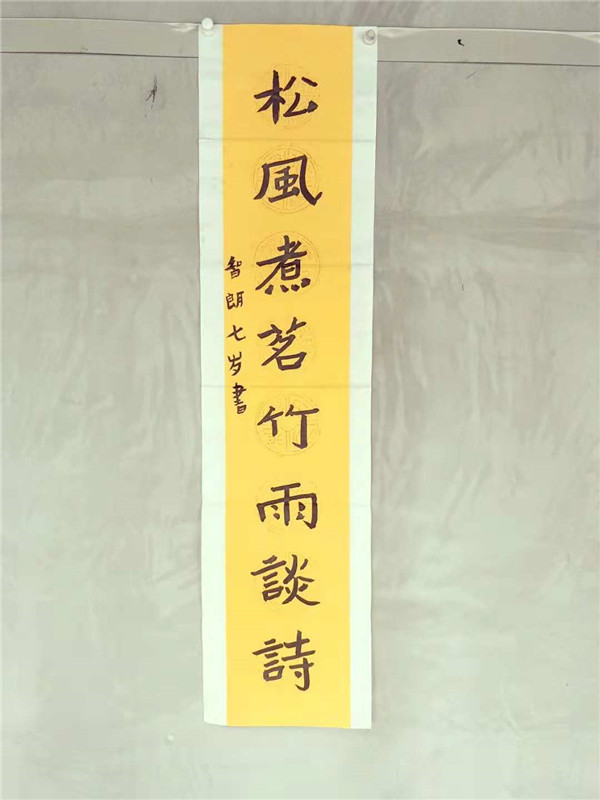 松風煮茗竹雨談詩
智朗七岁書